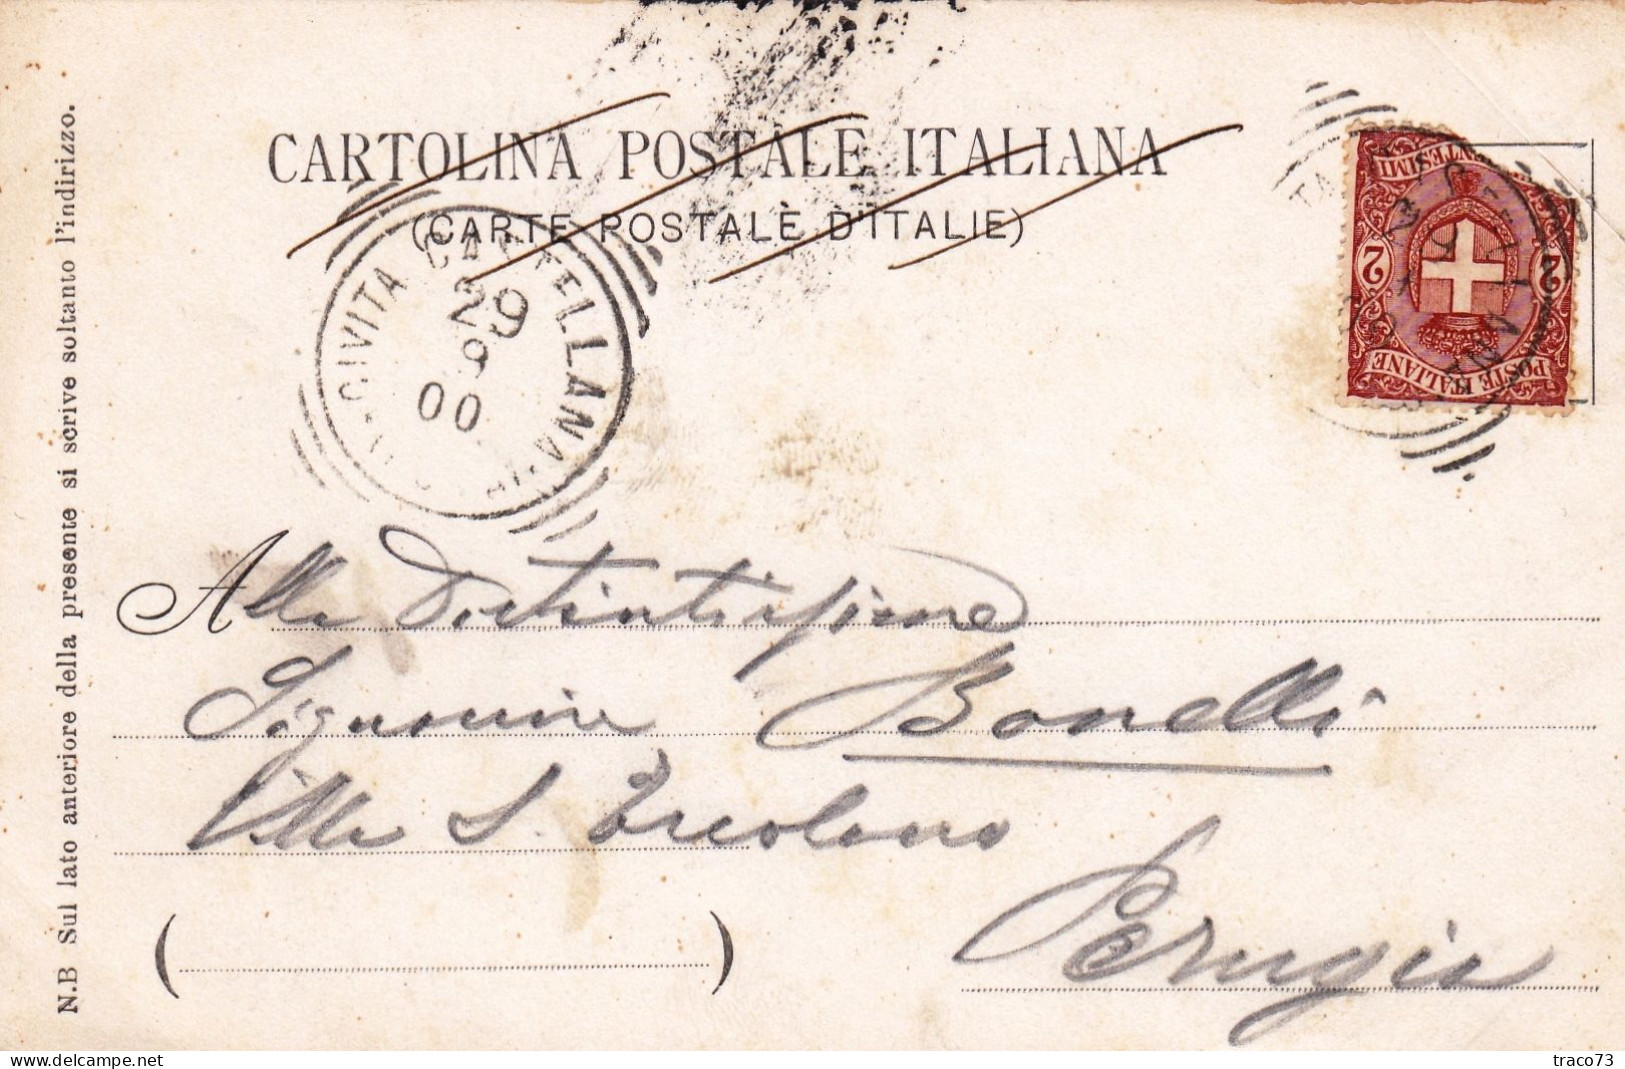 CARTOLINA POSTALE ITALIANA
(CARTE POSTALE D'ITALIE)
CIVITA CASTELLANA
29
9
00
POSTE ITALIANE
2 2
Alla Distintissime
Signorine Bonelli
Villa S. Ercolano
Perugia
N.B Sul lato anteriore della presente si scrive soltanto l'indirizzo.
delcampe.net
traco73